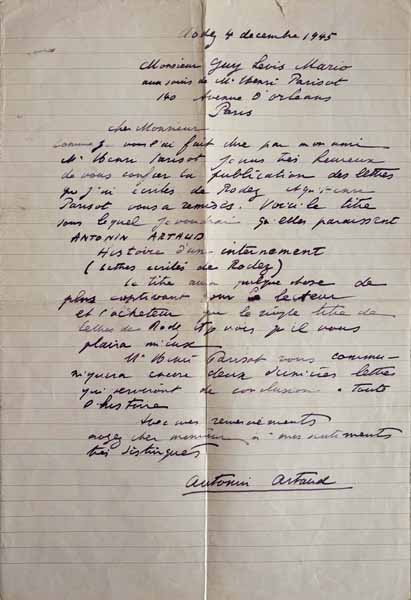 Rodez 4 decembre 1945
Monsieur Guy Levis Mano
aux soins de Mr Henri Parisot
140 Avenue d'orleans
Paris
cher Monsieur
comme je vous l'ai fait dire par mon ami
Mr Henri Parisot je suis très heureux
de vous confier la publication des lettres
que j'ai écrites de Rodez et qu'Henri
Parisot vous a remises. Voici le titre
sous lequel je voudrai qu'elles paraissent
ANTONIN ARTAUD
Histoire d'un internement
(Lettres écrites de Rodez)
Ce titre aura quelque chose de
plus captivant sur le lecteur
et l'acheteur que le simple titre de
lettres de Rodez vois qu'il vous
plaira mieux
Mr Henri Parisot vous commu-
niquera encore deux dernières lettres
qui serviront de conclusion à toute
l'histoire
Avec mes remerciements
cher monsieur à mes sentiments
très distingués
Antonin Artaud